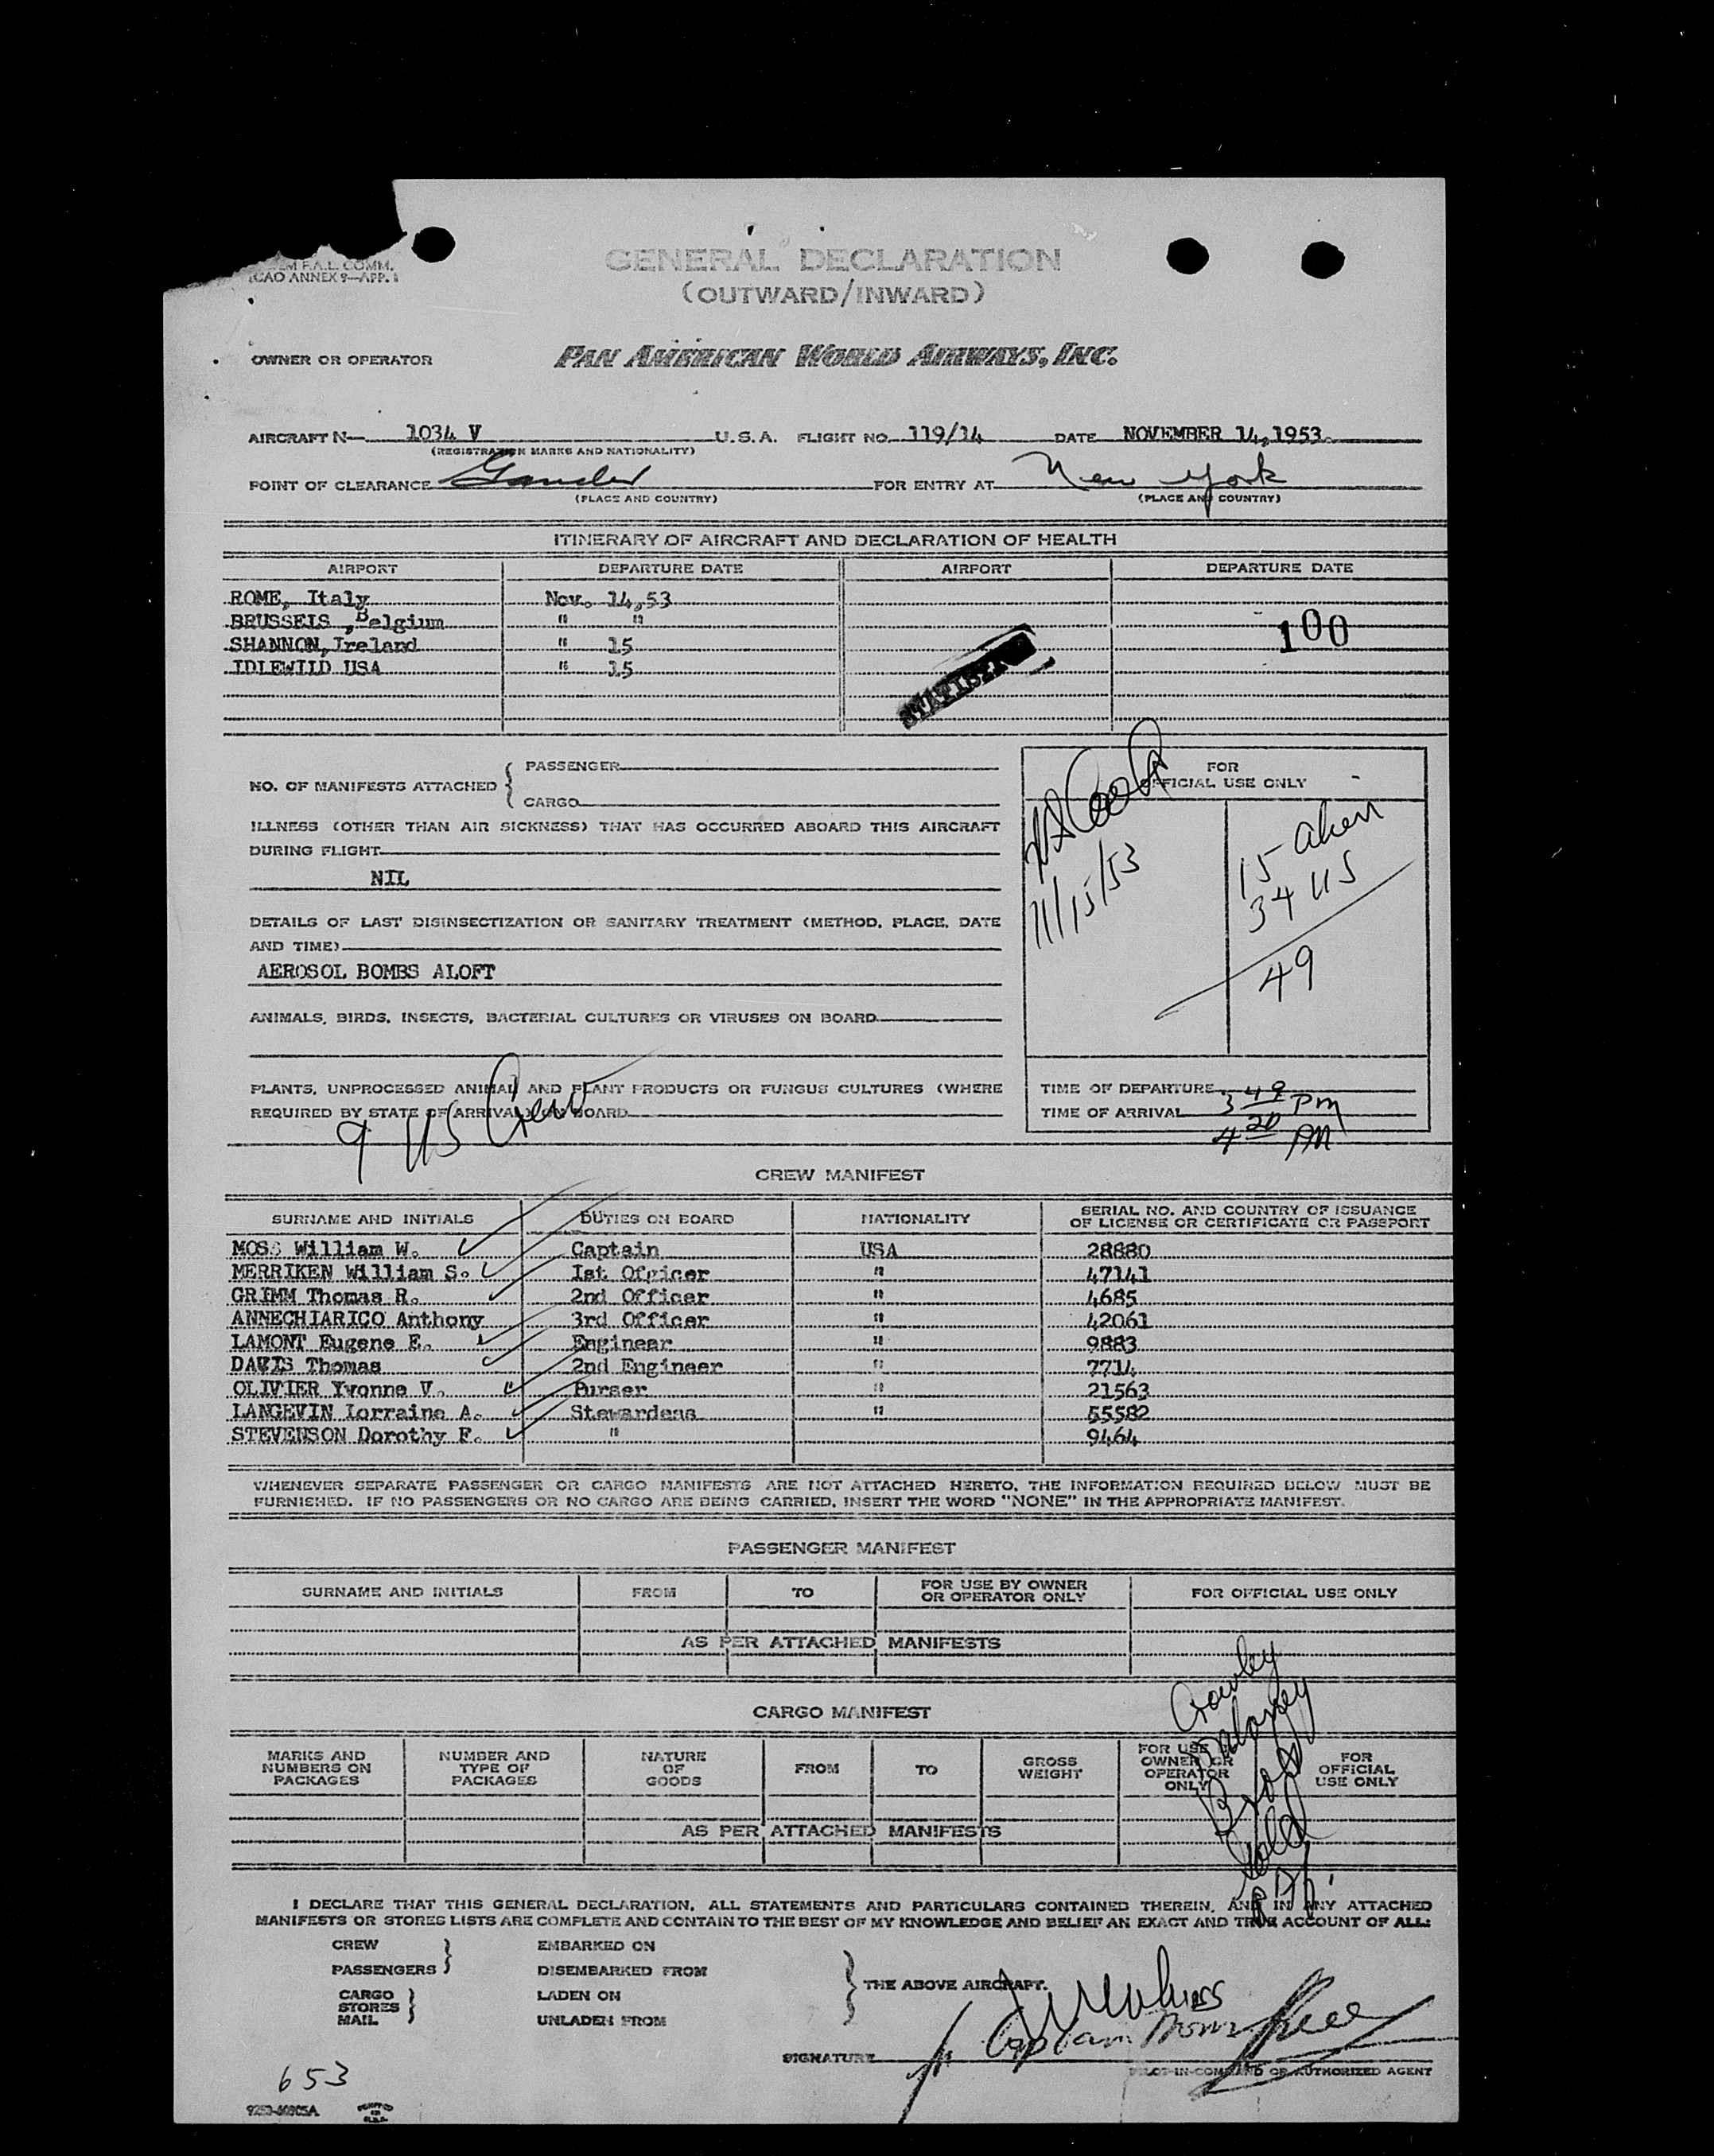 F.A.L. COMM.
ICAO ANNEX 9—APP. 1
GENERAL DECLARATION
(OUTWARD/INWARD)
OWNER OR OPERATOR PAN AMERICAN WORLD AIRWAYS, INC.
AIRCRAFT N— 1034 V U.S.A. FLIGHT NO. 119/14 DATE NOVEMBER 14,1953.
(REGISTRATION MARKS AND NATIONALITY)
POINT OF CLEARANCE Gander FOR ENTRY AT New York
(PLACE AND COUNTRY) (PLACE AND COUNTRY)
ITINERARY OF AIRCRAFT AND DECLARATION OF HEALTH
AIRPORT DEPARTURE DATE AIRPORT DEPARTURE DATE
ROME, Italy Nov. 14,53
BRUSSELS ,Belgium " " 100
SHANNON,Ireland " 15
IDLEWILD USA " 15
NO. OF MANIFESTS ATTACHED { PASSENGER
CARGO
FOR
OFFICIAL USE ONLY
ILLNESS (OTHER THAN AIR SICKNESS) THAT HAS OCCURRED ABOARD THIS AIRCRAFT
DURING FLIGHT
NIL
11/15/53
15 alien
34 US
49
DETAILS OF LAST DISINSECTIZATION OR SANITARY TREATMENT (METHOD, PLACE, DATE
AND TIME)
AEROSOL BOMBS ALOFT
ANIMALS, BIRDS, INSECTS, BACTERIAL CULTURES OR VIRUSES ON BOARD
PLANTS, UNPROCESSED ANIMAL AND PLANT PRODUCTS OR FUNGUS CULTURES (WHERE
REQUIRED BY STATE OF ARRIVAL) ON BOARD
9 US Crew
TIME OF DEPARTURE 3 49 Pm
TIME OF ARRIVAL 4 20 PM
CREW MANIFEST
SURNAME AND INITIALS DUTIES ON BOARD NATIONALITY SERIAL NO. AND COUNTRY OF ISSUANCE
OF LICENSE OR CERTIFICATE OR PASSPORT
MOSS William W. Captain USA 28880
MERRIKEN William S. Ist Ofgicer " 47141
GRIMM Thomas R. 2nd Officer " 4685
ANNECHIARICO Anthony 3rd Officer " 42061
LAMONT Eugene E. Engineer " 9883
DAVIS Thomas 2nd Engineer " 7714
OLIVIER Yvonne V. Purser " 21563
LANGEVIN Lorraine A. Stewardess " 55582
STEVENSON Dorothy F. " 9464
WHENEVER SEPARATE PASSENGER OR CARGO MANIFESTS ARE NOT ATTACHED HERETO, THE INFORMATION REQUIRED BELOW MUST BE
FURNISHED. IF NO PASSENGERS OR NO CARGO ARE BEING CARRIED, INSERT THE WORD "NONE" IN THE APPROPRIATE MANIFEST.
PASSENGER MANIFEST
SURNAME AND INITIALS FROM TO FOR USE BY OWNER
OR OPERATOR ONLY FOR OFFICIAL USE ONLY
AS PER ATTACHED MANIFESTS
Crowley
Maloney
CARGO MANIFEST
MARKS AND
NUMBERS ON
PACKAGES
NUMBER AND
TYPE OF
PACKAGES
NATURE
OF
GOODS
FROM TO
GROSS
WEIGHT
FOR USE
OWNER OR
OPERATOR
ONLY
FOR
OFFICIAL
USE ONLY
AS PER ATTACHED MANIFESTS
I DECLARE THAT THIS GENERAL DECLARATION, ALL STATEMENTS AND PARTICULARS CONTAINED THEREIN, AND IN ANY ATTACHED
MANIFESTS OR STORES LISTS ARE COMPLETE AND CONTAIN TO THE BEST OF MY KNOWLEDGE AND BELIEF AN EXACT AND TRUE ACCOUNT OF ALL:
CREW
PASSENGERS } EMBARKED ON
DISEMBARKED FROM
CARGO
STORES
MAIL } LADEN ON
UNLADEN FROM
} THE ABOVE AIRCRAFT.
Captain Moss
SIGNATURE
PILOT-IN-COMMAND OR AUTHORIZED AGENT
653